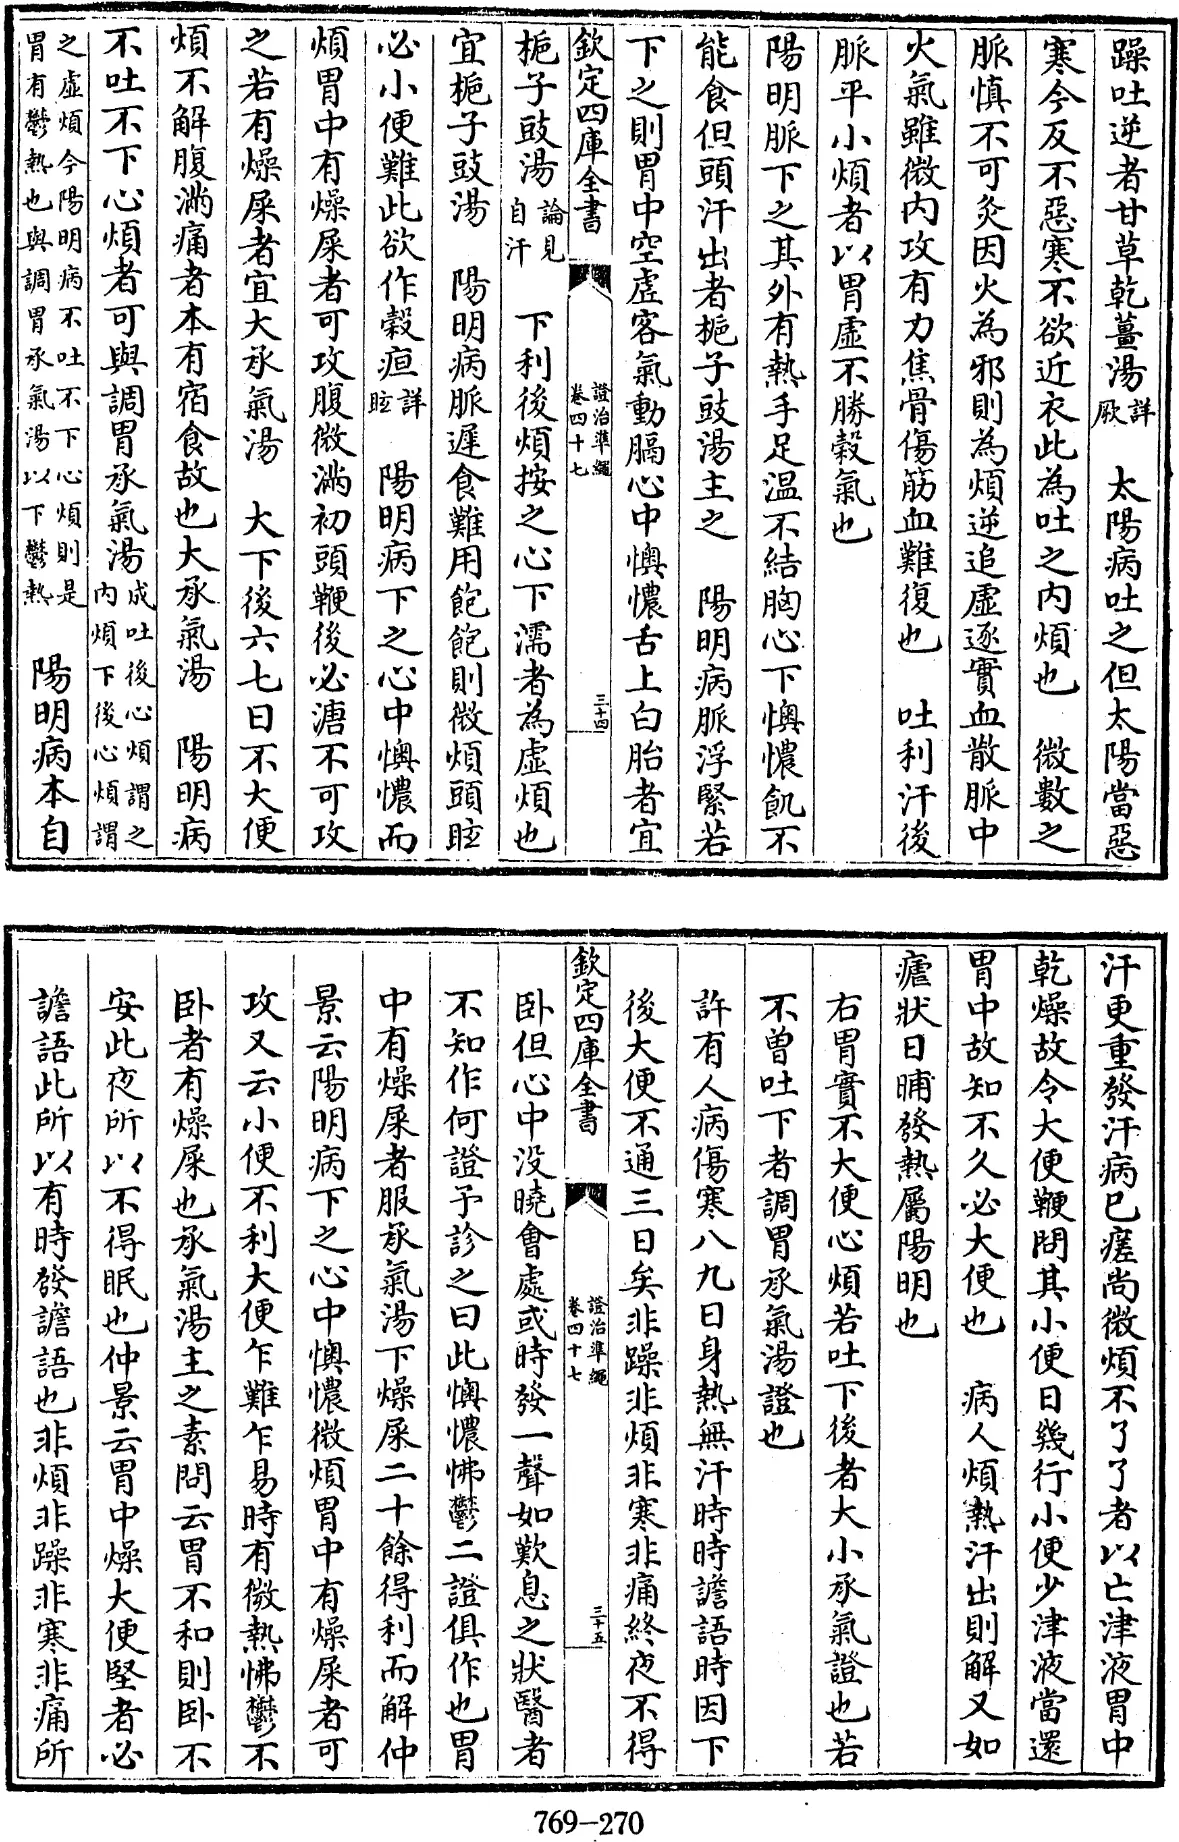 躁吐逆者甘草乾薑湯詳厥　太陽病吐之但太陽當惡
寒今反不惡寒不欲近衣此為吐之內煩也　微數之
脈慎不可灸因火為邪則為煩逆追虛逐實血散脈中
火氣雖微內攻有力焦骨傷筋血難復也　吐利汗後
脈平小煩者以胃虛不勝穀氣也
陽明脈下之其外有熱手足溫不結胸心下懊憹飢不
能食但頭汗出者梔子豉湯主之　陽明病脈浮緊若
下之則胃中空虛客氣動膈心中懊憹舌上白胎者宜
欽定四庫全書　證治準繩卷四十七　三十四
梔子豉湯論見自汗　下利後煩按之心下濡者為虛煩也
宜梔子豉湯　陽明病脈遲食難用飽飽則微煩頭眩
必小便難此欲作穀疸詳眩　陽明病下之心中懊憹而
煩胃中有燥屎者可攻腹微滿初頭鞕後必溏不可攻
之若有燥屎者宜大承氣湯　大下後六七日不大便
煩不解腹滿痛者本有宿食故也大承氣湯　陽明病
不吐不下心煩者可與調胃承氣湯成吐後心煩謂之內煩下後心煩謂
之虛煩今陽明病不吐不下心煩則是胃有鬱熱也與調胃承氣湯以下鬱熱　陽明病本自
汗更重發汗病已瘥尚微煩不了了者以亡津液胃中
乾燥故令大便鞕問其小便日幾行小便少津液當還
胃中故知不久必大便也　病人煩熱汗出則解又如
瘧狀日晡發熱屬陽明也
右胃實不大便心煩若吐下後者大小承氣證也若
不曾吐下者調胃承氣湯證也
許有人病傷寒八九日身熱無汗時時譫語時因下
後大便不通三日矣非躁非煩非寒非痛終夜不得
欽定四庫全書　證治準繩卷四十七　三十五
臥但心中沒曉會處或時發一聲如歎息之狀醫者
不知作何證予診之曰此懊憹怫鬱二證俱作也胃
中有燥屎者服承氣湯下燥屎二十餘得利而解仲
景云陽明病下之心中懊憹微煩胃中有燥屎者可
攻又云小便不利大便乍難乍易時有微熱怫鬱不
臥者有燥屎也承氣湯主之素問云胃不和則臥不
安此夜所以不得眠也仲景云胃中燥大便堅者必
譫語此所以有時發譫語也非煩非躁非寒非痛所
769-270